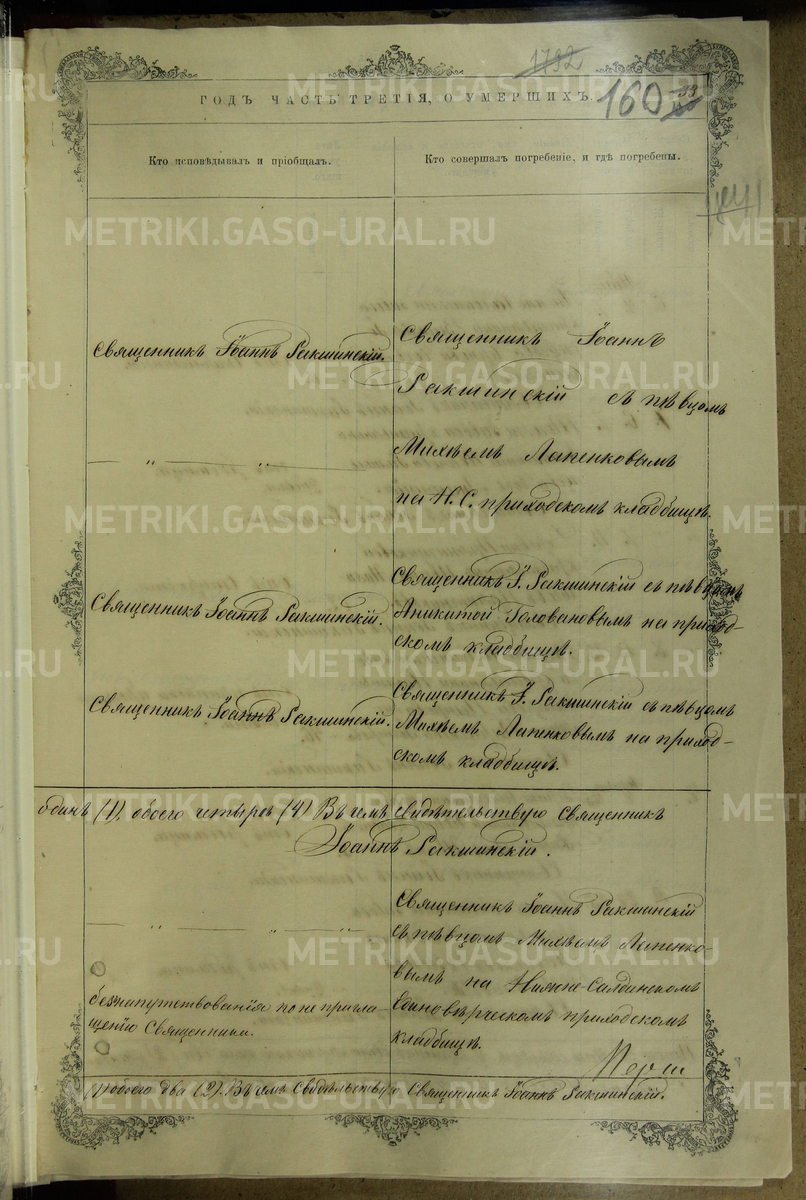 1792
ГОДЪ ЧАСТЬ ТРЕТІЯ, О УМЕРШИХЪ.
160
Кто исповѣдывалъ и пріобщалъ.
Кто совершалъ погребеніе, и гдѣ погребены.
METRIKI.GASO-URAL.RU
Священникъ Іоаннъ Ракшинскій.
Священникъ Іоаннъ
Ракшинскій съ пѣвцомъ
Михѣемъ Лапенковымъ
на Н. С. приходскомъ кладбищѣ.
— „ — „ —
Священникъ Іоаннъ Ракшинскій.
Священникъ І. Ракшинскій съ пѣвцомъ
Аникитой Головановымъ на приход-
скомъ кладбищѣ.
Священникъ Іоаннъ Ракшинскій.
Священникъ І. Ракшинскій съ пѣвцомъ
Михѣемъ Лапенковымъ на приход-
скомъ кладбищѣ.
одинъ (1), обоего четыре (4) Въ чемъ свидѣтельствую Священникъ
Іоаннъ Ракшинскій.
— „ — „ — „ —
Священникъ Іоаннъ Ракшинскій
съ пѣвцомъ Михѣемъ Лапенко-
вымъ на Нижне-Салдинскомъ
Единовѣрческомъ приходскомъ
кладбищѣ.
безъ напутствованія по не пригла-
шенію Священника.
(1) обоего два (2). Въ чемъ Свидѣтельствую Священникъ Іоаннъ Ракшинскій.